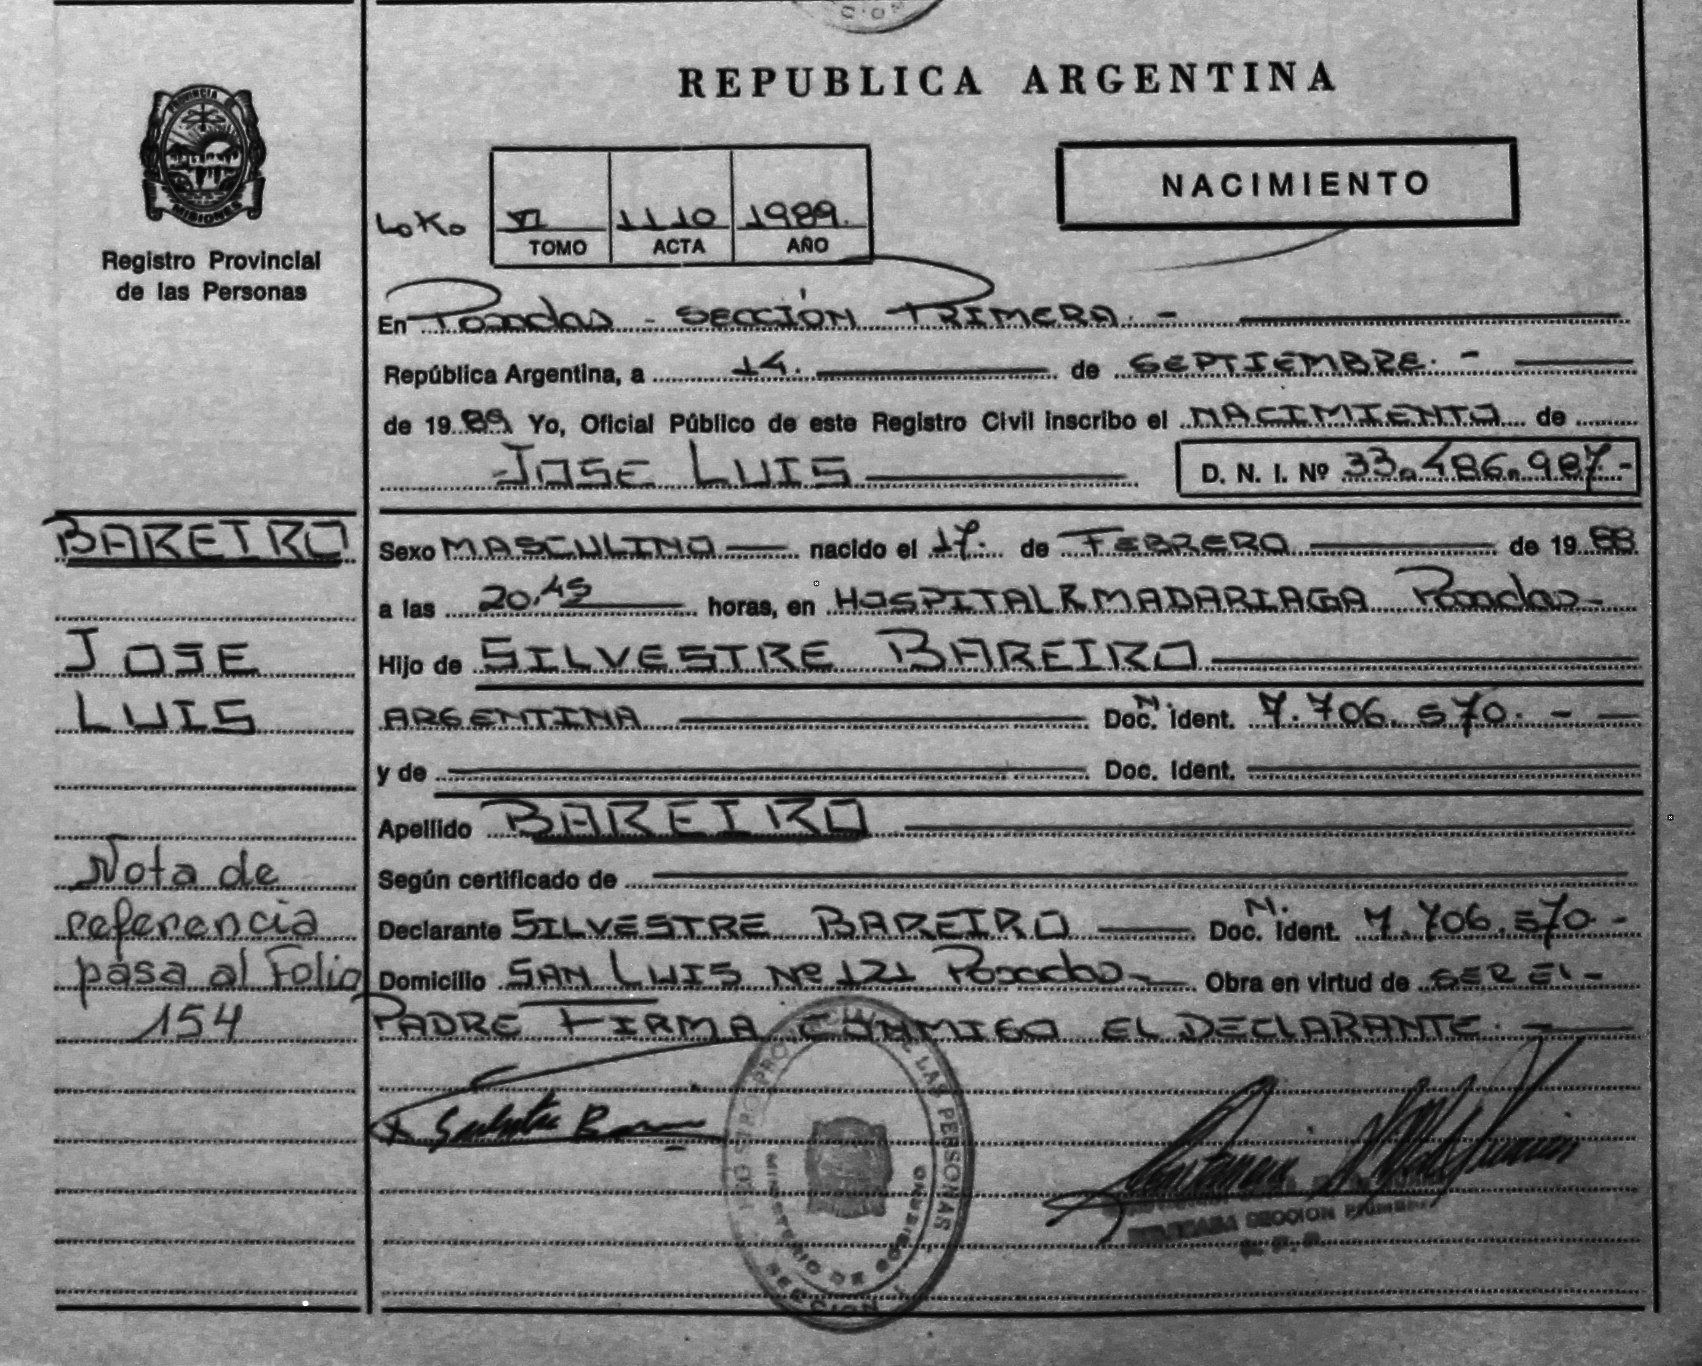 REPUBLICA ARGENTINA
NACIMIENTO
VI 1110 1989.
TOMO ACTA AÑO
PROVINCIA DE
MISIONES
Registro Provincial
de las Personas
En Posadas - SECCIÓN PRIMERA. -
República Argentina, a 14. de SEPTIEMBRE. -
de 1989 Yo, Oficial Público de este Registro Civil inscribo el NACIMIENTO de
JOSE LUIS D. N. I. Nº 33.486.987.-
BAREIRO
JOSE
LUIS
Nota de
referencia
pasa al Folio
154
Sexo MASCULINO nacido el 17. de FEBRERO de 1988
a las 20,45 horas, en HOSPITAL R MADARIAGA Posadas-
Hijo de SILVESTRE BAREIRO
ARGENTINA Doc. Ident. M. 7.706.570. - -
y de Doc. Ident.
Apellido BAREIRO
Según certificado de
Declarante SILVESTRE BAREIRO Doc. Ident. M. 7.706.570.-
Domicilio SAN LUIS Nº 121 Posadas- Obra en virtud de SER EL-
PADRE FIRMA CONMIGO EL DECLARANTE. -
PROVINCIAL DE LAS PERSONAS
MINISTERIO DE GOBIERNO
SECCION
SECCION